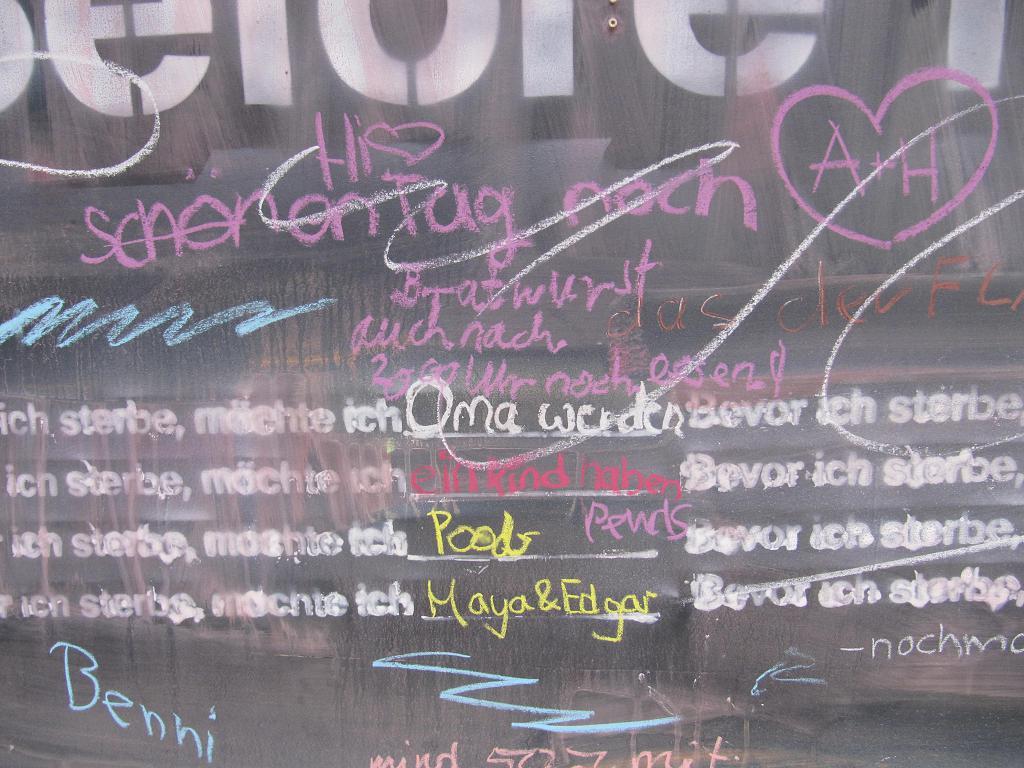 before I
Hi
schönen Tag noch
A + H
Bratwurst
das der
auch nach
Uhr noch essen!
ich sterbe, möchte ich Oma werden Bevor ich sterbe,
ich sterbe, möchte ich ein kind haben Bevor ich sterbe,
ich sterbe, möchte ich Bevor ich sterbe,
r ich sterbe, möchte ich Maya & Edgar Bevor ich sterbe,
-nochma
Benni
mit